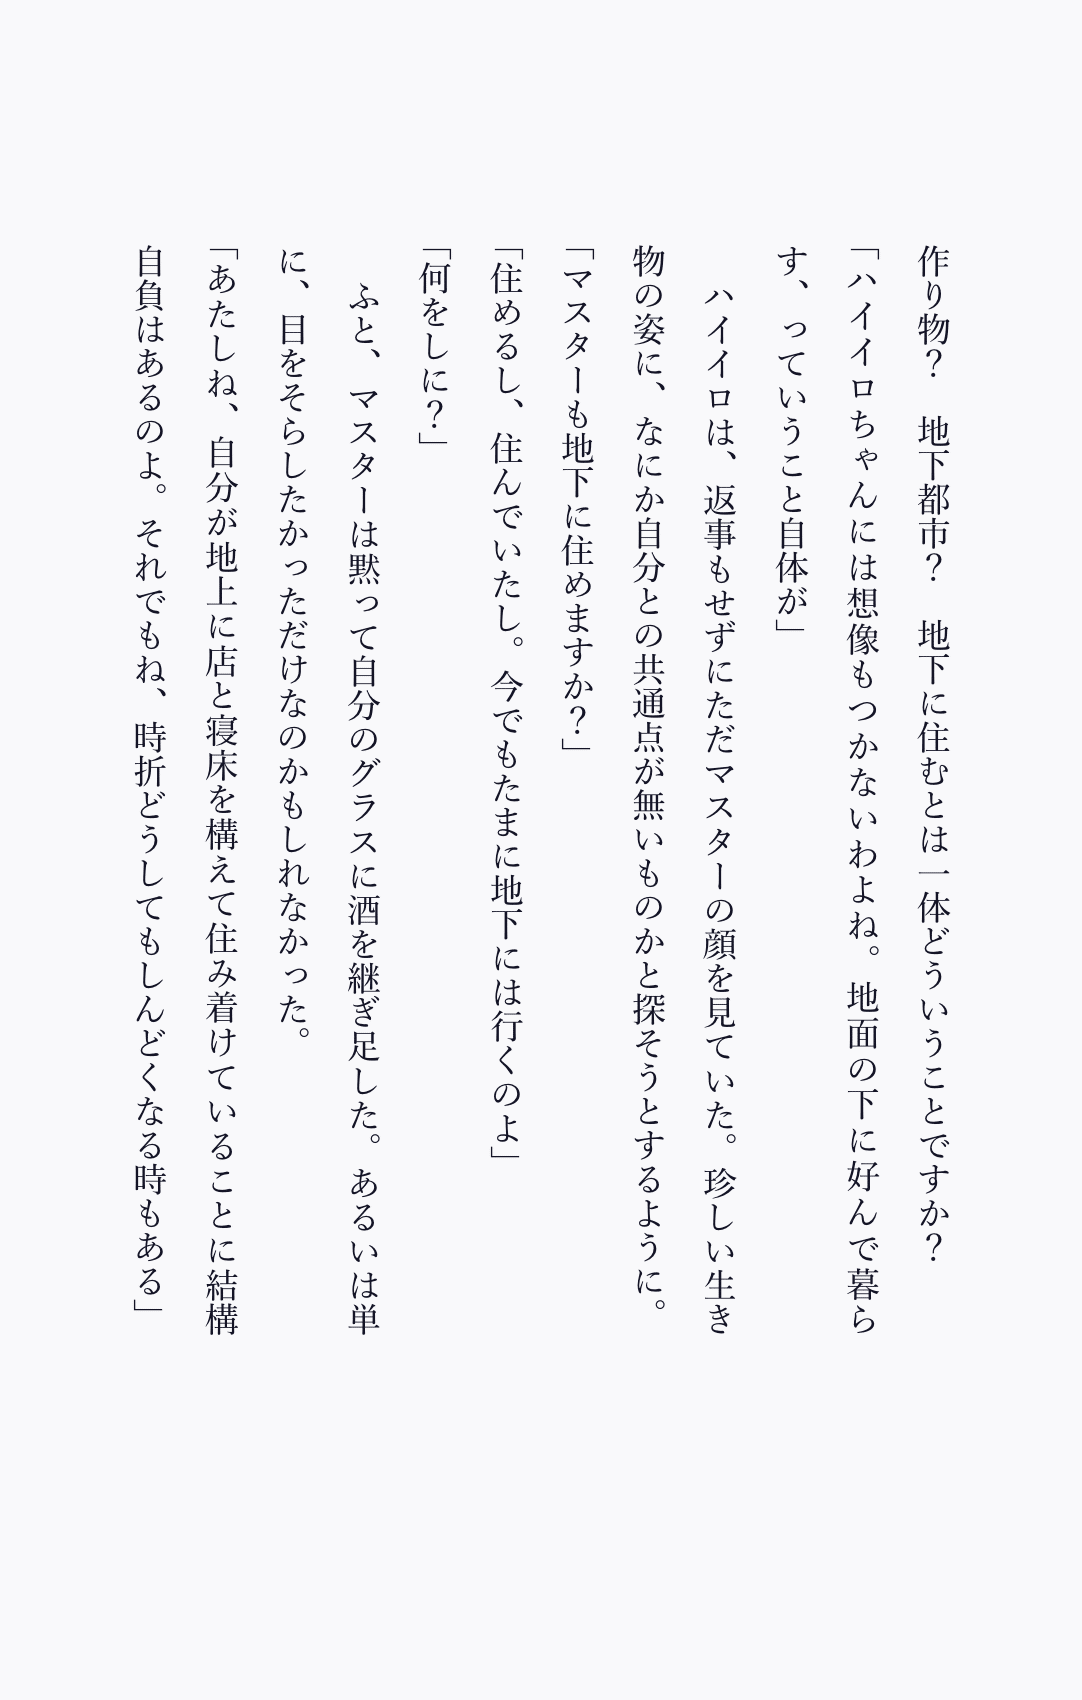 作り物？　地下都市？　地下に住むとは一体どういうことですか？
「ハイイロちゃんには想像もつかないわよね。地面の下に好んで暮ら
す、っていうこと自体が」
　ハイイロは、返事もせずにただマスターの顔を見ていた。珍しい生き
物の姿に、なにか自分との共通点が無いものかと探そうとするように。
「マスターも地下に住めますか？」
「住めるし、住んでいたし。今でもたまに地下には行くのよ」
「何をしに？」
　ふと、マスターは黙って自分のグラスに酒を継ぎ足した。あるいは単
に、目をそらしたかっただけなのかもしれなかった。
「あたしね、自分が地上に店と寝床を構えて住み着けていることに結構
自負はあるのよ。それでもね、時折どうしてもしんどくなる時もある」